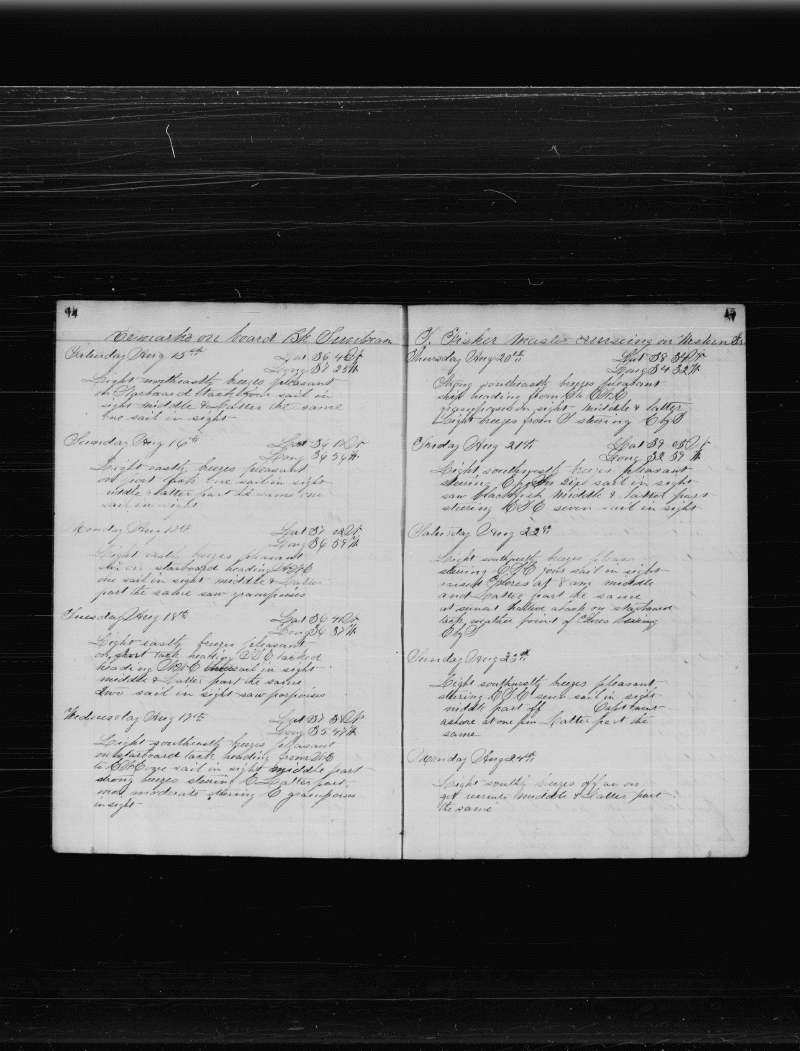 94
Remarks on board Bk Sunbeam
Saturday Aug 15th Lat 36 42 N
Long 37 25 W
Light northeastly breezes pleasant
on starboard tack one sail in
sight middle & Latter the same
one sail in sight
Sunday Aug 16th Lat 36 11 N
Long 36 54 W
Light eastly breezes pleasant
on port tack one sail in sight
middle & latter part the same one
sail in sight
Monday Aug 17th Lat 37 02 N
Long 36 59 W
Light eastly breezes pleasant
on starboard heading
one sail in sight middle & Latter
part the same saw grampuses
Tuesday Aug 18th Lat 36 41 N
Long 36 37 W
Light eastly breezes pleasant
on port tack heading tacked
heading sail in sight
middle & Latter part the same
sail in sight saw porpoises
Wednesday Aug 19th Lat 37 38 N
Long 35 47 W
Light southeastly breezes pleasant
on starboard tack heading from NE
to ENE one sail in sight middle part
strong breezes steering E Latter part
more moderate steering E grampuses
in sight
T. Fisher Master cruising on Western
Thursday Aug 20th Lat 38 34 N
Long 34 32 W
Strong southeastly breezes pleasant
ship heading from
grampuses in sight middle & latter
Light breezes from S steering E by S
Friday Aug 21th Lat 39 05 N
Long 32 59 W
Light southwestly breezes pleasant
steering E by S six sail in sight
saw blackfish middle & latter part
steering ESE seven sail in sight
Saturday Aug 22th
Light southwestly breezes
steering ESE sail in sight
raised Flores at 8 am middle
and Latter part the same
at sunset aback on starboard
tack weather point of Flores bearing
E by S
Sunday Aug 23th
Light southwestly breezes pleasant
steering ESE seven sail in sight
middle part off Capt went
ashore at one pm Latter part the
same
Monday Aug 24th
Light southly breezes off an on
get recruits middle & Latter part
the same